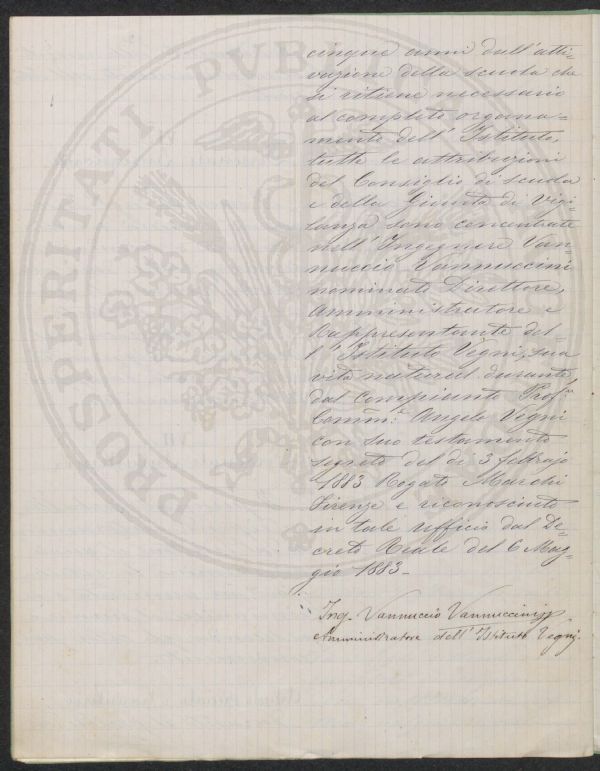 cinque anni dall'atti=
vazione della scuola che
si ritiene necessario
al completo organa=
mento dell'Istituto,
tutte le attribuzioni
del Consiglio di scuola
e della Giunta di Vigi=
lanza sono concentrate
nell'Ingegnere Van=
nuccio Vannuccini
nominato Direttore,
Amministratore e
Rappresentante del=
l'Istituto Vegni, sua
vita natural durante,
dal compianto Prof.re
Comm.e Angelo Vegni
con suo testamento
segreto del dì 3 febbrajo
1883 Rogato Marchi
Firenze e riconosciuto
in tale ufficio dal De=
creto Reale del 6 Mag=
gio 1883_
Ing. Vannuccio Vannuccini
Amministratore dell'Istituto Vegni.
PROSPERITATI PVB